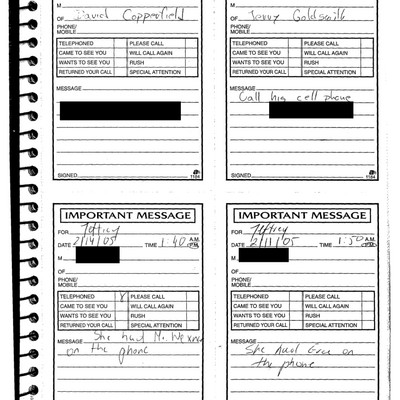 M
OF David Copperfield
PHONE/
MOBILE
TELEPHONED PLEASE CALL
CAME TO SEE YOU WILL CALL AGAIN
WANTS TO SEE YOU RUSH
RETURNED YOUR CALL SPECIAL ATTENTION
MESSAGE
SIGNED 1184
M
OF Jonny Goldsmith
PHONE/
MOBILE
TELEPHONED PLEASE CALL
CAME TO SEE YOU WILL CALL AGAIN
WANTS TO SEE YOU RUSH
RETURNED YOUR CALL SPECIAL ATTENTION
MESSAGE
Call his cell phone
SIGNED 1184
IMPORTANT MESSAGE
FOR Jeffrey
DATE 2/14/05 TIME 1:40 A.M. P.M.
M
OF
PHONE/
MOBILE
TELEPHONED PLEASE CALL
CAME TO SEE YOU WILL CALL AGAIN
WANTS TO SEE YOU RUSH
RETURNED YOUR CALL SPECIAL ATTENTION
MESSAGE She had M. Wexner
on the phone
IMPORTANT MESSAGE
FOR Jeffrey
DATE 2/11/05 TIME 1:50 A.M. P.M.
M
OF
PHONE/
MOBILE
TELEPHONED PLEASE CALL
CAME TO SEE YOU WILL CALL AGAIN
WANTS TO SEE YOU RUSH
RETURNED YOUR CALL SPECIAL ATTENTION
MESSAGE
She had on
the phone